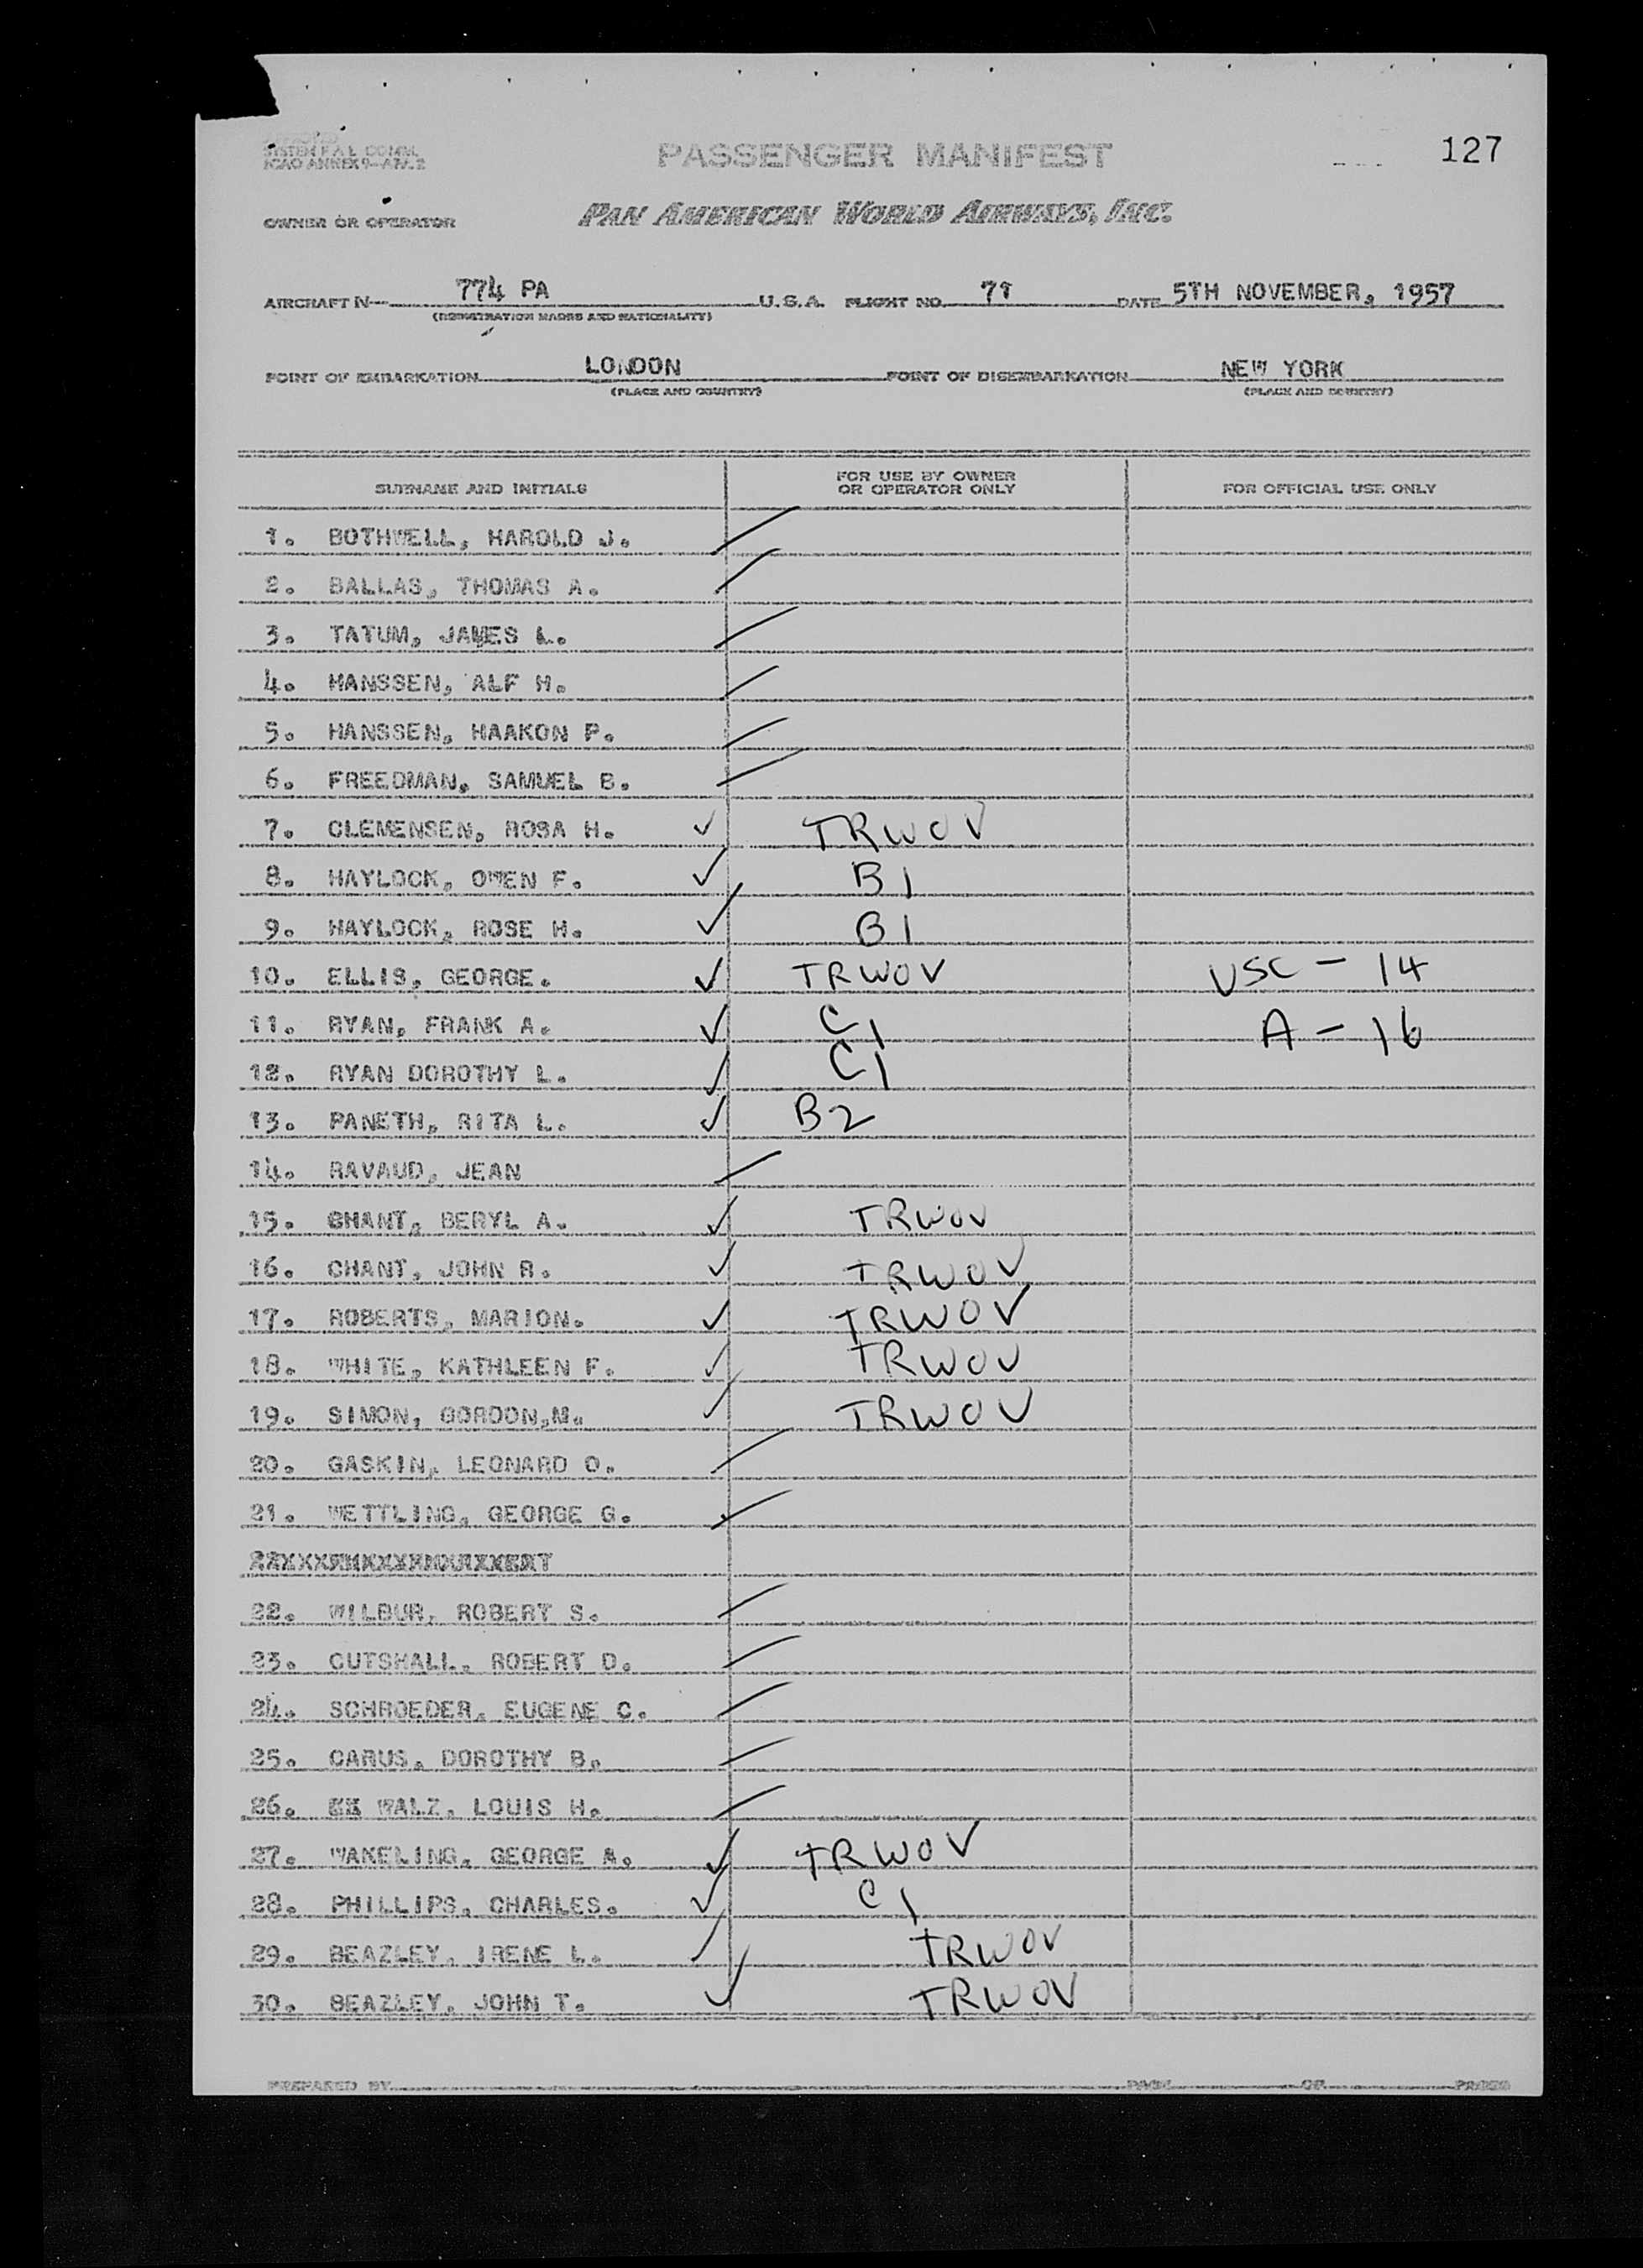 127
SYSTEM F.A.L. COMM.
ICAO ANNEX 9—APP. 2
PASSENGER MANIFEST
OWNER OR OPERATOR PAN AMERICAN WORLD AIRWAYS, INC.
AIRCRAFT N— 774 PA U.S.A. FLIGHT NO. 71 DATE 5TH NOVEMBER, 1957
(REGISTRATION MARKS AND NATIONALITY)
POINT OF EMBARKATION LONDON POINT OF DISEMBARKATION NEW YORK
(PLACE AND COUNTRY) (PLACE AND COUNTRY)
SURNAME AND INITIALS FOR USE BY OWNER OR OPERATOR ONLY FOR OFFICIAL USE ONLY
1. BOTHWELL, HAROLD J.
2. BALLAS, THOMAS A.
3. TATUM, JAMES L.
4. HANSSEN, ALF H.
5. HANSSEN, HAAKON P.
6. FREEDMAN, SAMUEL B.
7. CLEMENSEN, ROSA H. ✓ TRWOV
8. HAYLOCK, OWEN F. ✓ B1
9. HAYLOCK, ROSE H. ✓ B1
10. ELLIS, GEORGE. ✓ TRWOV USC - 14
11. RYAN, FRANK A. ✓ C1 A - 16
12. RYAN DOROTHY L. ✓ C1
13. PANETH, RITA L. ✓ B2
14. RAVAUD, JEAN
15. CHANT, BERYL A. ✓ TRWOV
16. CHANT, JOHN R. ✓ TRWOV
17. ROBERTS, MARION. ✓ TRWOV
18. WHITE, KATHLEEN F. ✓ TRWOV
19. SIMON, GORDON,M. ✓ TRWOV
20. GASKIN, LEONARD O.
21. WETTLING, GEORGE G.
22. WILBUR, ROBERT S.
23. CUTSHALL, ROBERT D.
24. SCHROEDER, EUGENE C.
25. CARUS, DOROTHY B.
26. WALZ, LOUIS H.
27. WAKELING, GEORGE A. ✓ TRWOV
28. PHILLIPS, CHARLES. ✓ C1
29. BEAZLEY, IRENE L. ✓ TRWOV
30. BEAZLEY, JOHN T. ✓ TRWOV
PREPARED BY PAGE OF PAGES